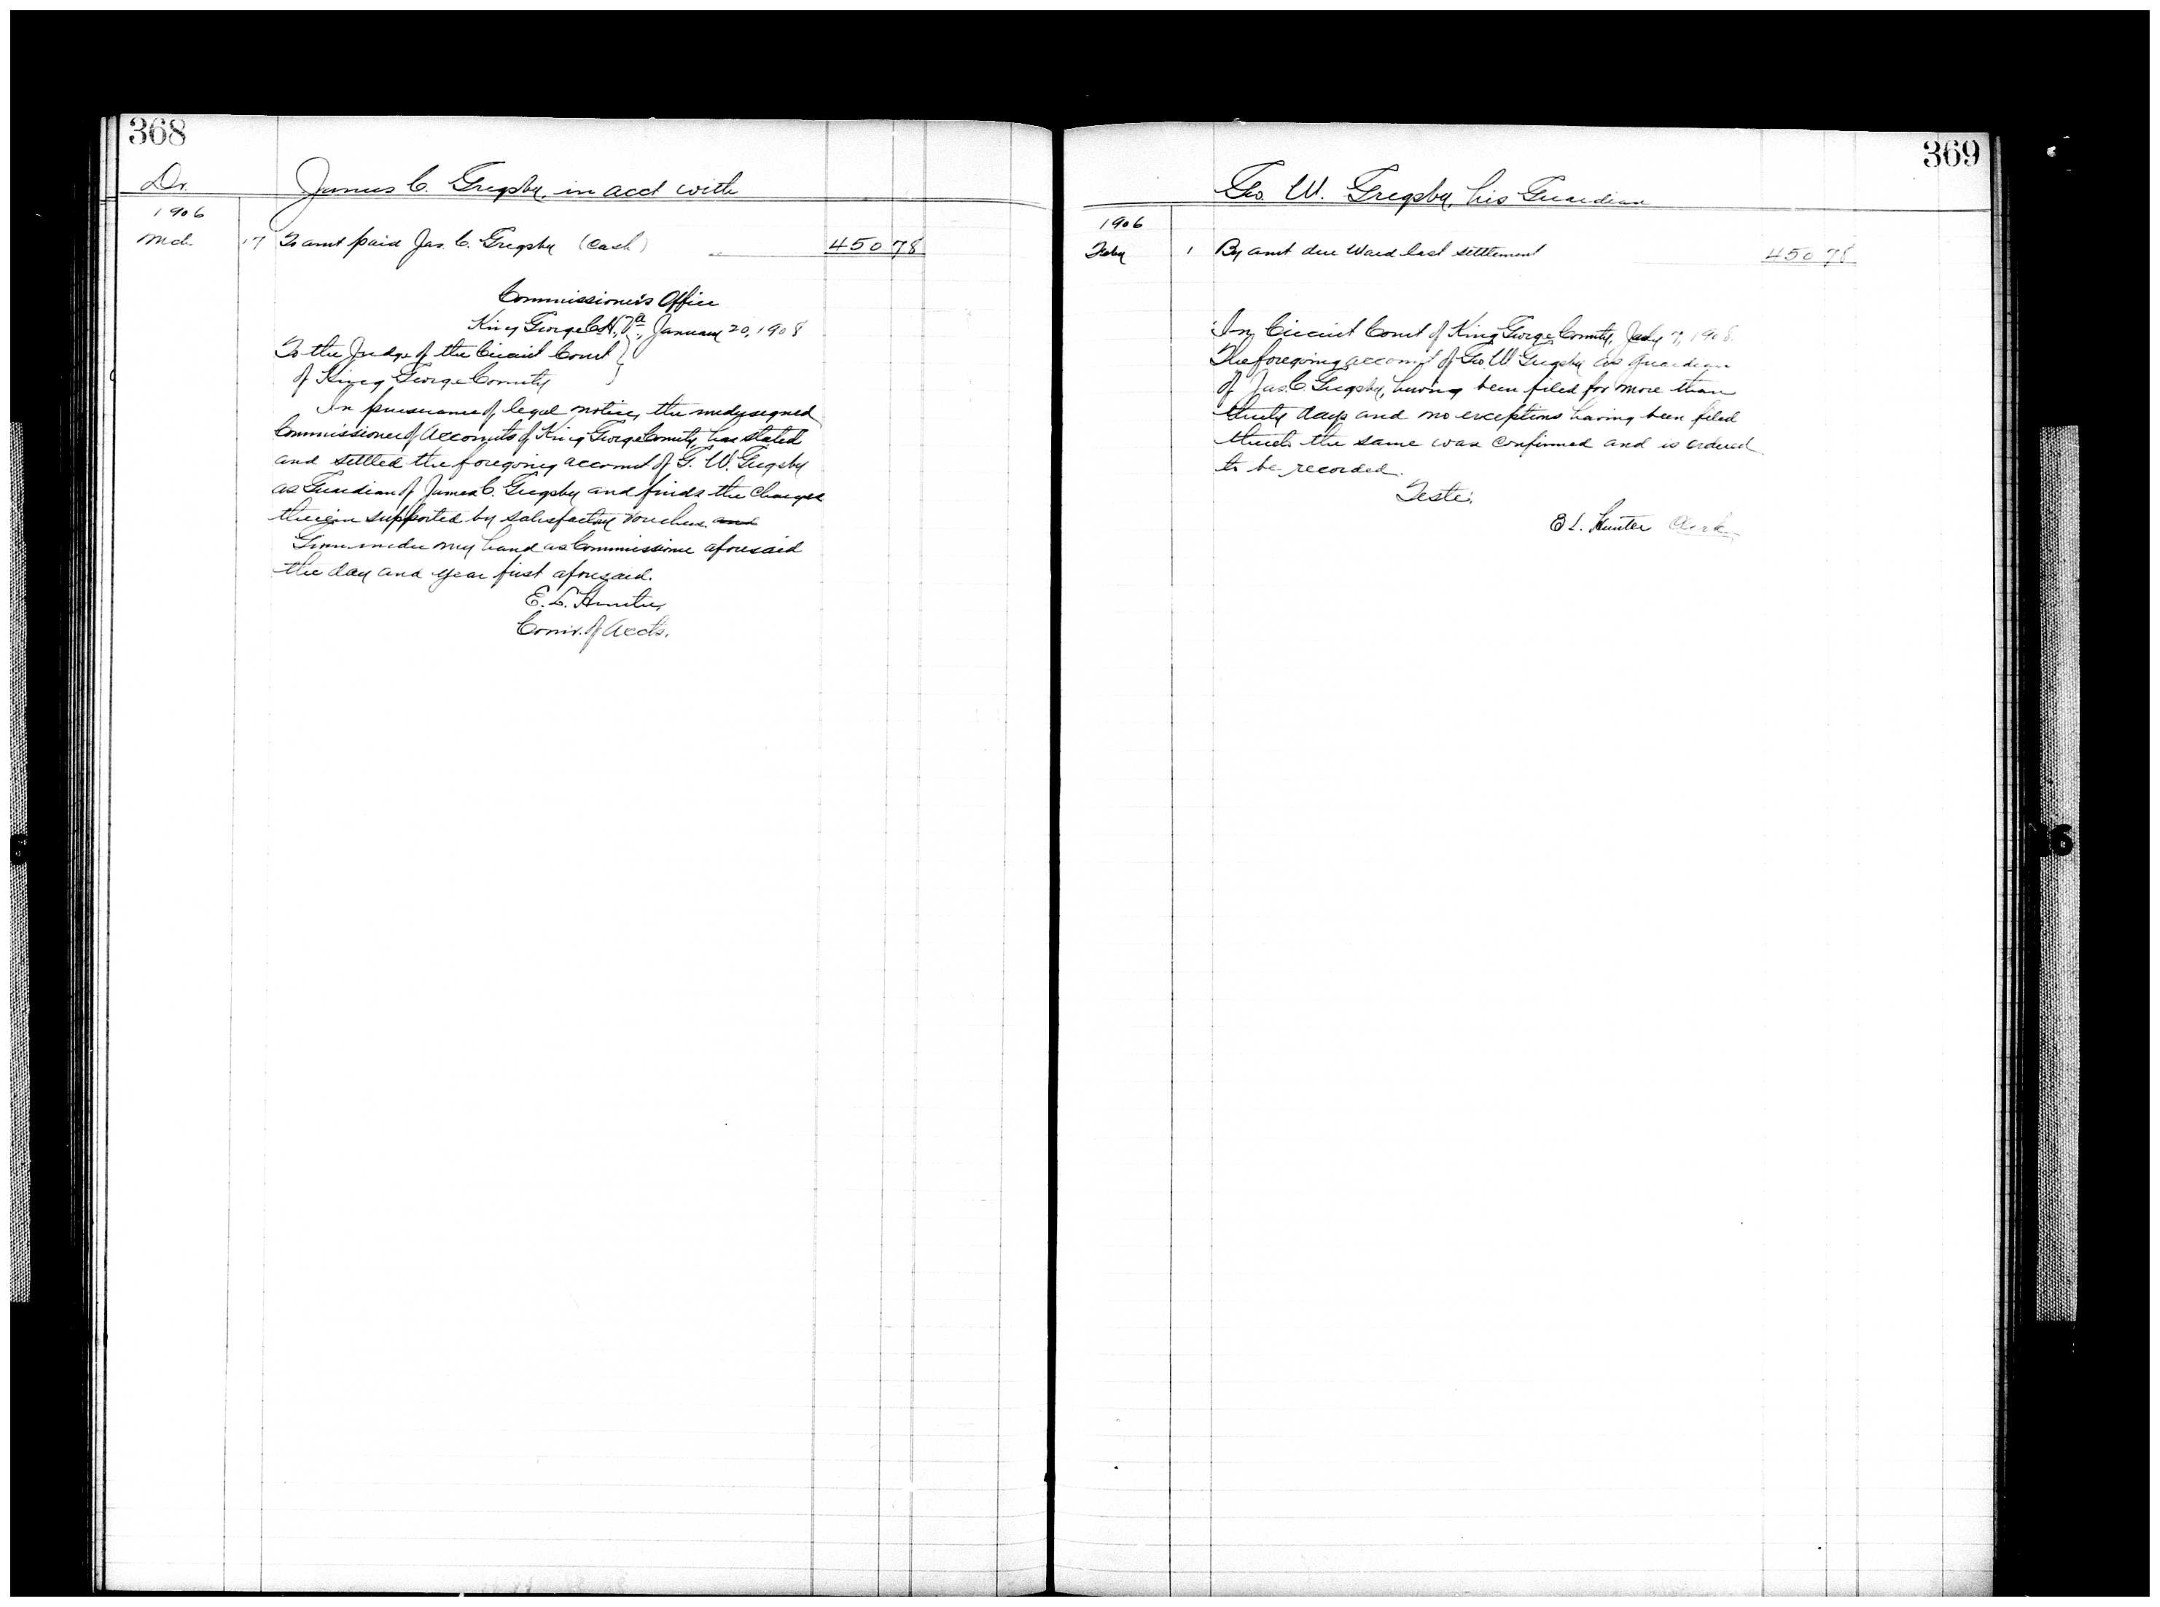 368
Dr. James C. Grigsby, in acct with
1906
Mch. 17 To amt paid Jas. C. Grigsby (Cash) 450 78
Commissioner's Office
King George C.H., Va., January 20, 1908
To the Judge of the Circuit Court
of King George County
In pursuance of legal notice, the undersigned
Commissioner of Accounts of King George County, has stated
and settled the foregoing account of G. W. Grigsby
as Guardian of James C. Grigsby and finds the charges
therein supported by satisfactory vouchers and
Given under my hand as Commissioner aforesaid
the day and year first aforesaid.
E. L. Hunter,
Comr. of Accts.
369
Geo. W. Grigsby, his Guardian
1906
Feby 1 By amt due Ward last settlement 450 78
In Circuit Court of King George County, 7, 1908.
The foregoing account of Geo. W. Grigsby as Guardian
of Jas. C. Grigsby, having been filed for more than
thirty days and no exceptions having been filed
thereto the same was confirmed and is ordered
to be recorded.
Teste:
E L. Hunter Clerk